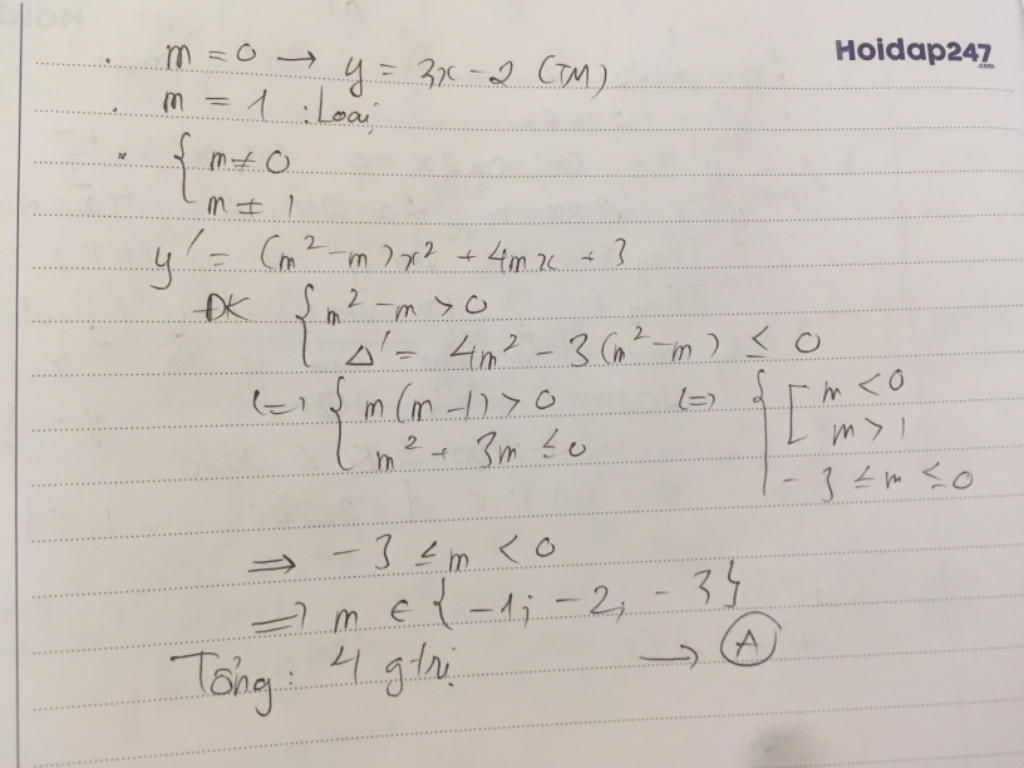 Hoidap247.com
. m = 0 → y = 3x - 2 (TM)
. m = 1 : Loại
* { m ≠ 0
m ≠ 1
y' = (m² - m)x² + 4mx + 3
ĐK { m² - m > 0
Δ' = 4m² - 3(m² - m) ≤ 0
(=) { m(m - 1) > 0 (=) { [ m < 0
m² + 3m ≤ 0 m > 1
- 3 ≤ m ≤ 0
⇒ - 3 ≤ m < 0
⇒ m ∈ { -1; -2; -3 }
Tổng: 4 gtrị → A